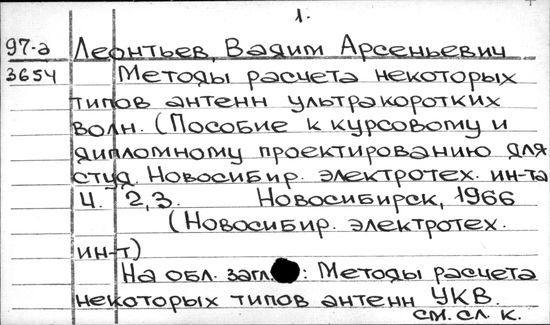 1.
97-а Леонтьев, Вадим Арсеньевич
3654 Методы расчета некоторых
типов антенн ультракоротких
волн. (Пособие к курсовому и
дипломному проектированию для
студ. Новосибир. электротех. ин-та
Ч. 2,3. Новосибирск, 1966
(Новосибир. электротех.
ин-т)
На обл. загл.: Методы расчета
некоторых типов антенн УКВ.
см. сл. к.